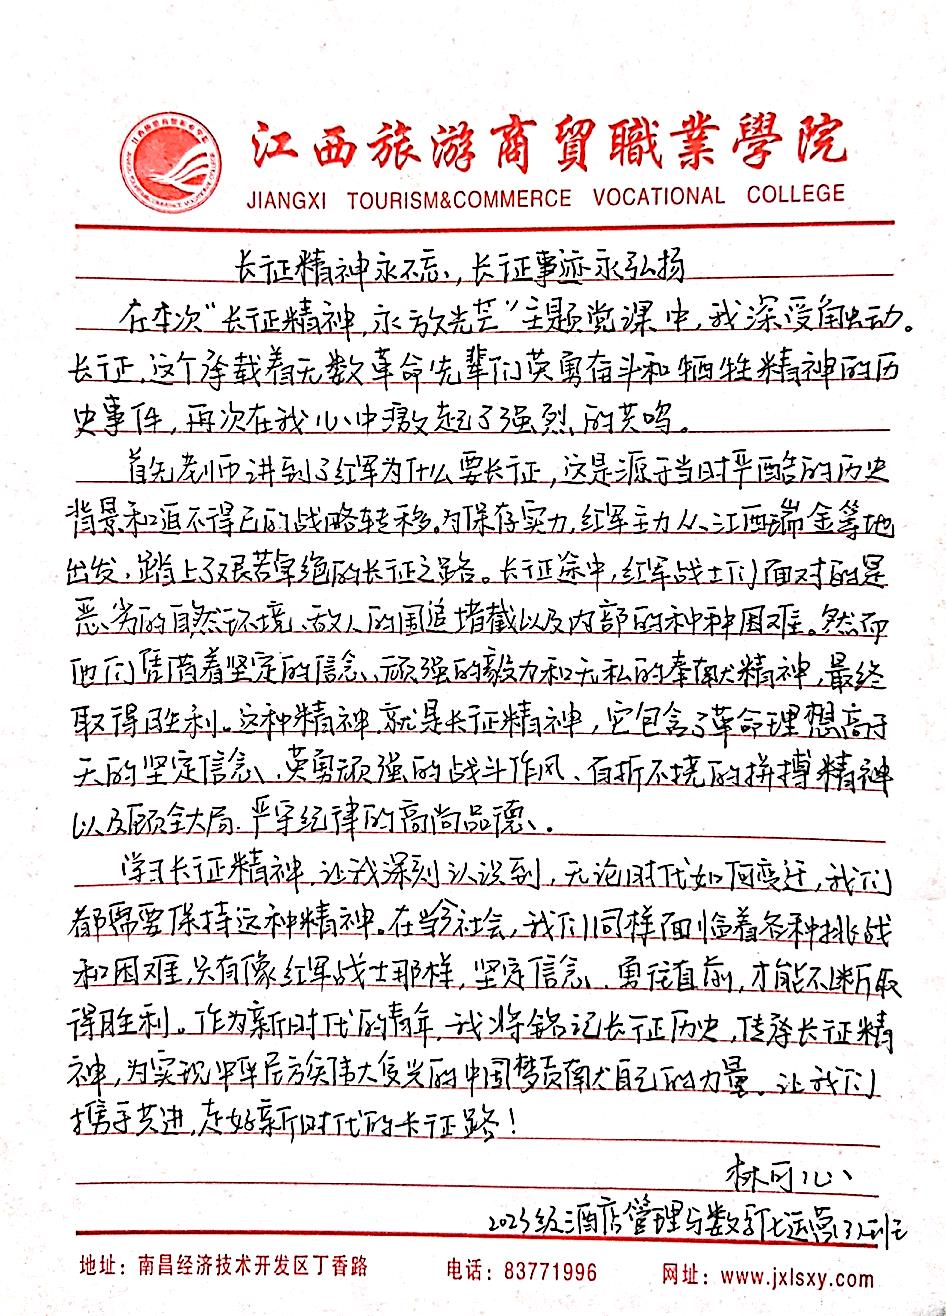 江西旅游商貿職業學院
JIANGXI TOURISM&COMMERCE VOCATIONAL COLLEGE
长征精神永不忘，长征事迹永弘扬
在本次“长征精神，永放光芒”主题党课中，我深受触动。
长征，这个承载着无数革命先辈们英勇奋斗和牺牲精神的历
史事件，再次在我心中激起了强烈的共鸣。
首先老师讲到了红军为什么要长征，这是源于当时严酷的历史
背景和迫不得已的战略转移。为保存实力，红军主力从江西瑞金等地
出发，踏上了艰苦卓绝的长征之路。长征途中，红军战士们面对的是
恶劣的自然环境、敌人的围追堵截以及内部的种种困难。然而
他们凭借着坚定的信念、顽强的毅力和无私的奉献精神，最终
取得胜利。这种精神，就是长征精神，它包含了革命理想高于
天的坚定信念、英勇顽强的战斗作风、百折不挠的拼搏精神
以及顾全大局、严守纪律的高尚品德。
学习长征精神，让我深刻认识到，无论时代如何变迁，我们
都需要保持这种精神。在当今社会，我们同样面临着各种挑战
和困难，只有像红军战士那样，坚定信念、勇往直前，才能不断取
得胜利。作为新时代的青年，我将铭记长征历史，传承长征精
神，为实现中华民族伟大复兴的中国梦贡献自己的力量。让我们
携手共进，走好新时代的长征路！
林可心
2023级酒店管理与数字化运营(3)班
地址：南昌经济技术开发区丁香路 电话：83771996 网址：www.jxlsxy.com